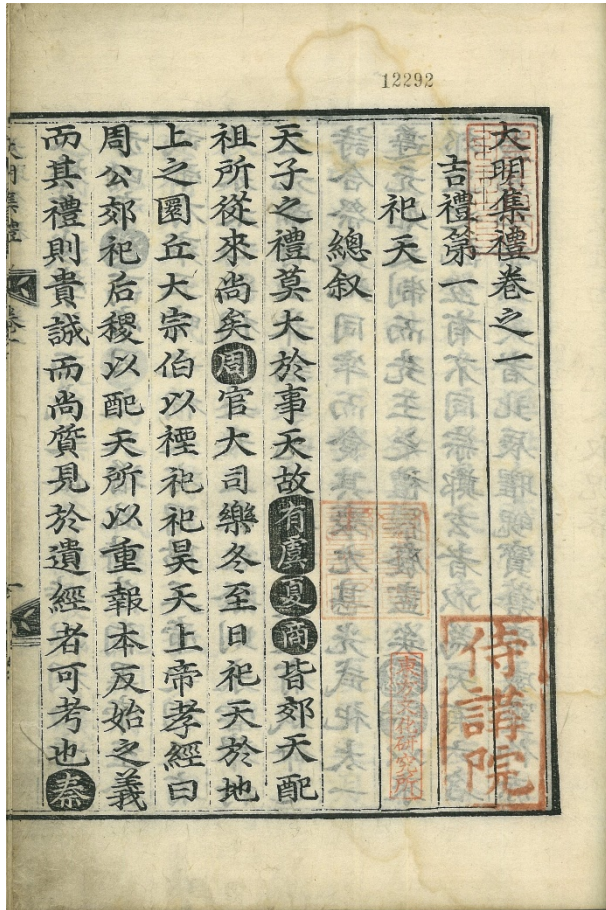 12292
大明集禮卷之一
吉禮第一
祀天
總叙
天子之禮莫大於事天故有虞夏商皆郊天配
祖所從來尚矣周官大司樂冬至日祀天於地
上之圜丘大宗伯以禋祀祀昊天上帝孝經曰
周公郊祀后稷以配天所以重報本反始之義
而其禮則貴誠而尚質見於遺經者可考也秦
侍講院
東方文化研究所